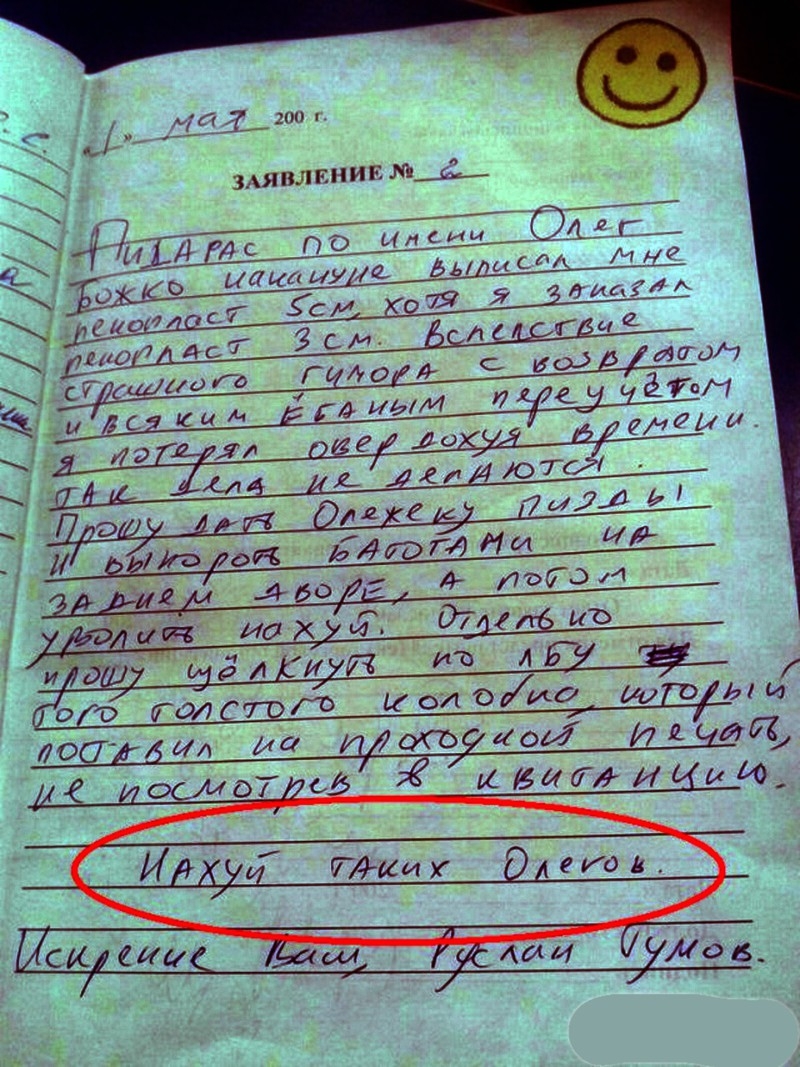 р. с.
а
«1» мая 200 г.
ЗАЯВЛЕНИЕ № 2
Пидарас по имени Олег
Божко накануне выписал мне
пенопласт 5см, хотя я заказал
пенопласт 3см. Вследствие
страшного гимора с возвратом
и всяким ёбаным переучётом
я потерял овердохуя времени.
так дела не делаются.
Прошу дать Олежеку пизды
и выпороть батогами на
заднем дворе, а потом
уволить нахуй. Отдельно
прошу щёлкнуть по лбу
того толстого колобка, который
поставил на проходной печать,
не посмотрев в квитанцию.
Нахуй таких Олегов.
Искренне Ваш, Руслан Гумов.